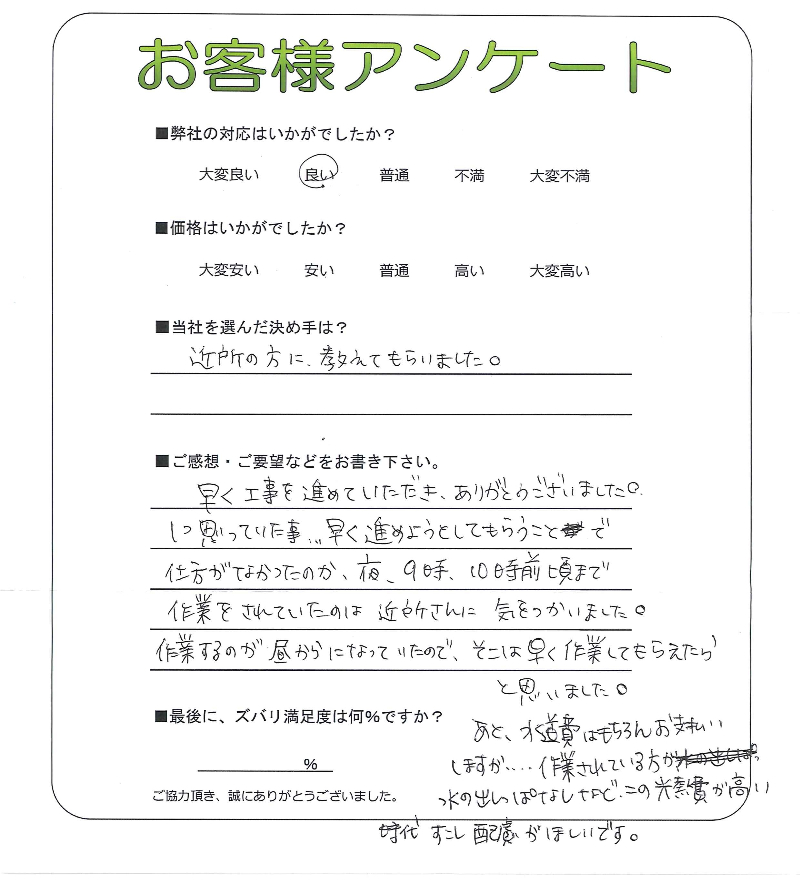 お客様アンケート
■弊社の対応はいかがでしたか？
大変良い 良い 普通 不満 大変不満
■価格はいかがでしたか？
大変安い 安い 普通 高い 大変高い
■当社を選んだ決め手は？
近所の方に、教えてもらいました。
■ご感想・ご要望などをお書き下さい。
早く工事を進めていただき、ありがとうございました。
1つ思っていた事…早く進めようとしてもらうことで
仕方がなかったのか、夜、9時、10時前頃まで
作業をされていたのは近所さんに 気をつかいました。
作業するのが昼からになっていたので、そこは早く作業してもらえたら
と思いました。
■最後に、ズバリ満足度は何％ですか？
％
あと、水道費はもちろんお支払い
しますが‥‥作業されている方が
水の出しっぱなしなど、この光熱費が高い
時代 すこし配慮がほしいです。
ご協力頂き、誠にありがとうございました。